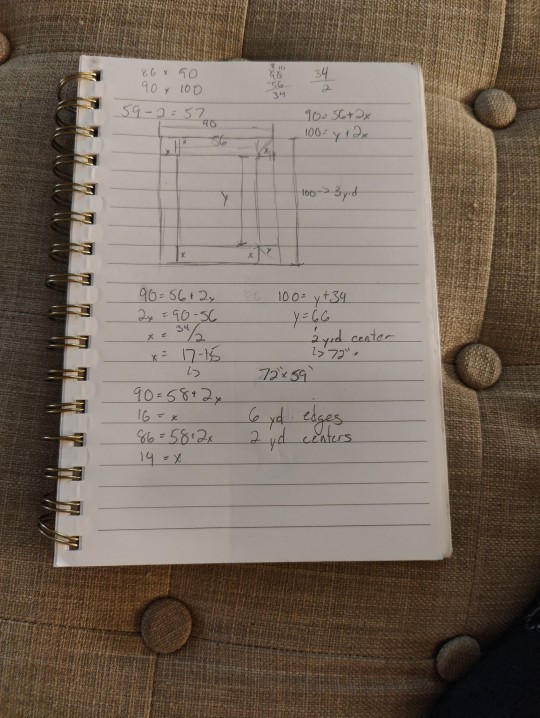 86 x 90
90 x 100
90
-56
34
34
2
59-2=57
90=56+2x
100=y+2x
90
56
x
x
x
y
100->3yd
x
x
x
90=56+2x
100=y+34
2x=90-56
y=66
x=34/2
2yd center
x=17-15
↳72".
↳
72"x59"
90=58+2x
16=x
6 yd edges
86=58+2x
2 yd centers
14=x